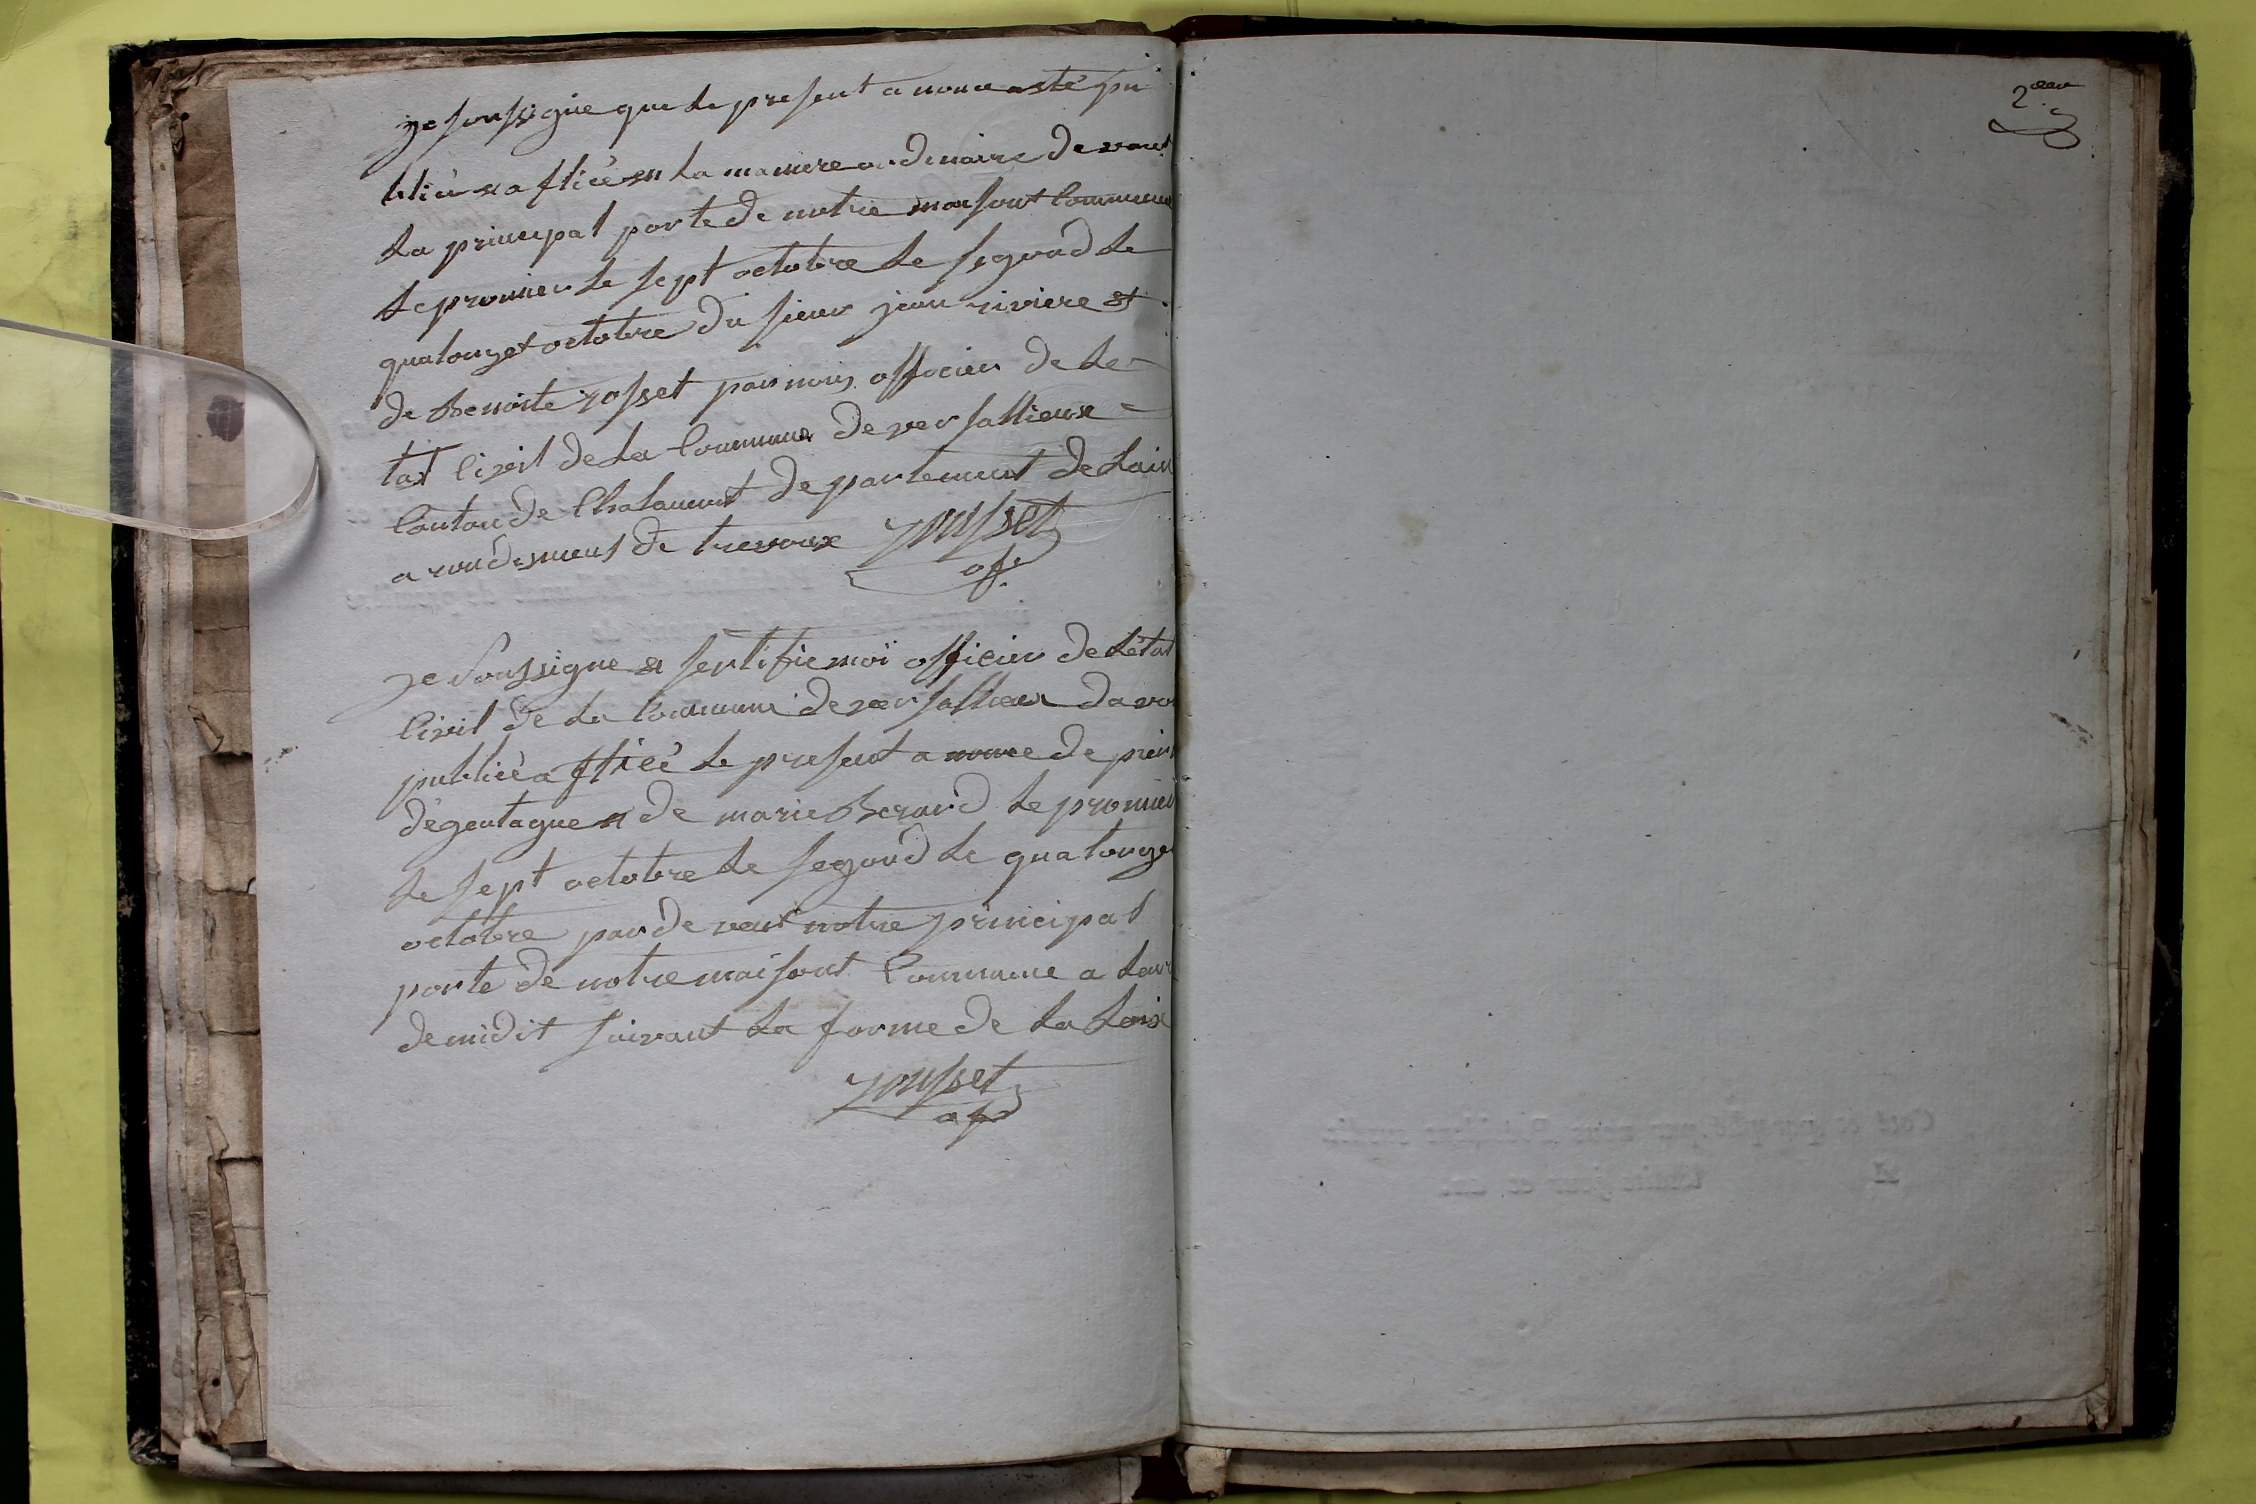 je soussigne que le present a nonce asté pu
bliè et a ffiée en la maniere ordinaire de vant
la principal porte de notre maisont commune
le promier le sept octobre le segond le
quatorzet octobre du sieur jean riviere et
de Benoite rosset par nous officier de le
tat civil de la commune de versallieux
canton de Chalamont departement de Lain
a rondismens de trevoux rousset
of.
je soussigne et sertifie moi officier de Létat
civil de la commune de versallieux da voir
publiè a ffieé le present a nonce de
dégentagne et de marie Berard le promier
le sept octobre le segond le quatorze
octobre par de vant notre principal
porte de notre maisont commune a leure
de midit suivant la forme de la Loix
rousset
of
2